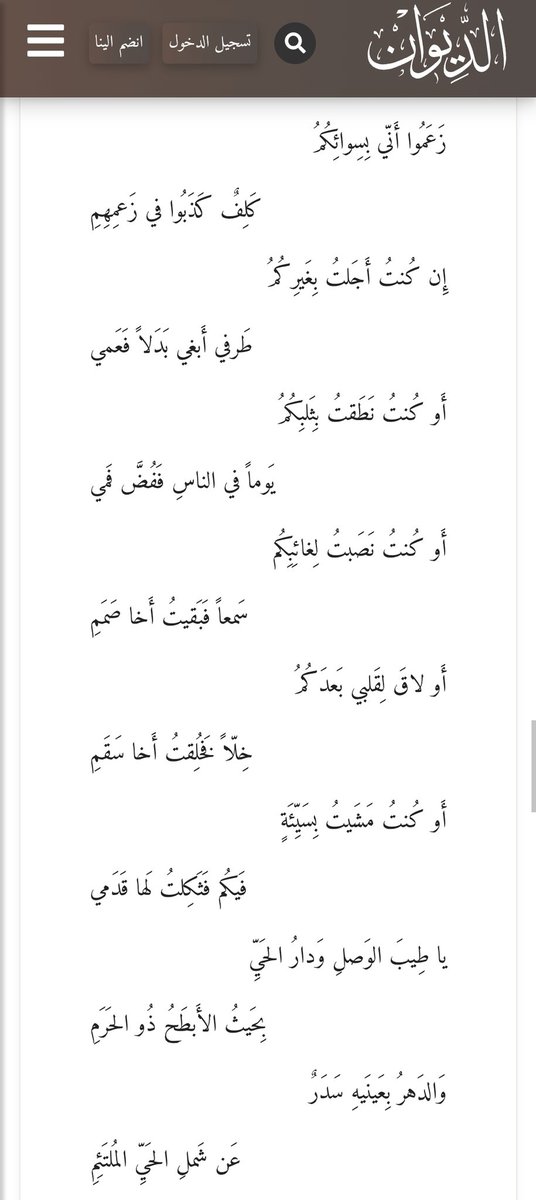 الدِّيوَان
تسجيل الدخول
انضم الينا
زَعَمُوا أَنّي بِسِوائِكُمُ
كَلِفٌ كَذَبُوا في زَعمِهِمِ
إِن كُنتُ أَجَلتُ بِغَيرِكُمُ
طَرفي أَبغي بَدَلاً فَعَمي
أَو كُنتُ نَطَقتُ بِثَلبِكُمُ
يَوماً في الناسِ فَفُضَّ فَمي
أَو كُنتُ نَصَبتُ لِغائِبِكُم
سَمعاً فَبَقيتُ أَخا صَمَمِ
أَو لاقَ لِقَلبي بَعدَكُمُ
خِلّاً فَخُلِقتُ أَخا سَقَمِ
أَو كُنتُ مَشَيتُ بِسَيِّئَةٍ
فَيكُم فَثَكِلتُ لَها قَدَمي
يا طِيبَ الوَصلِ وَدارُ الحَيِّ
بِحَيثُ الأَبطَحُ ذُو الحَرَمِ
وَالدَهرُ بِعَينَيهِ سَدَرٌ
عَن شَملِ الحَيِّ المُلتَئِمِ